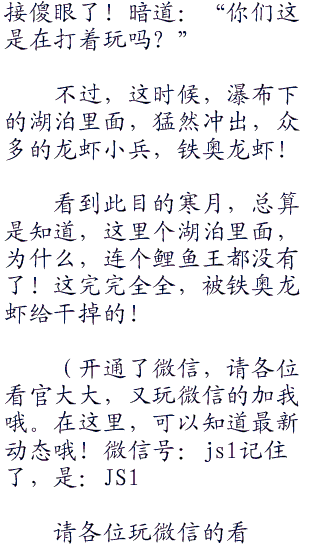 接傻眼了！暗道：“你们这
是在打着玩吗？”
不过，这时候，瀑布下
的湖泊里面，猛然冲出，众
多的龙虾小兵，铁奥龙虾！
看到此目的寒月，总算
是知道，这里个湖泊里面，
为什么，连个鲤鱼王都没有
了！这完完全全，被铁奥龙
虾给干掉的！
（开通了微信，请各位
看官大大，又玩微信的加我
哦。在这里，可以知道最新
动态哦！微信号：js1记住
了，是：JS1
请各位玩微信的看